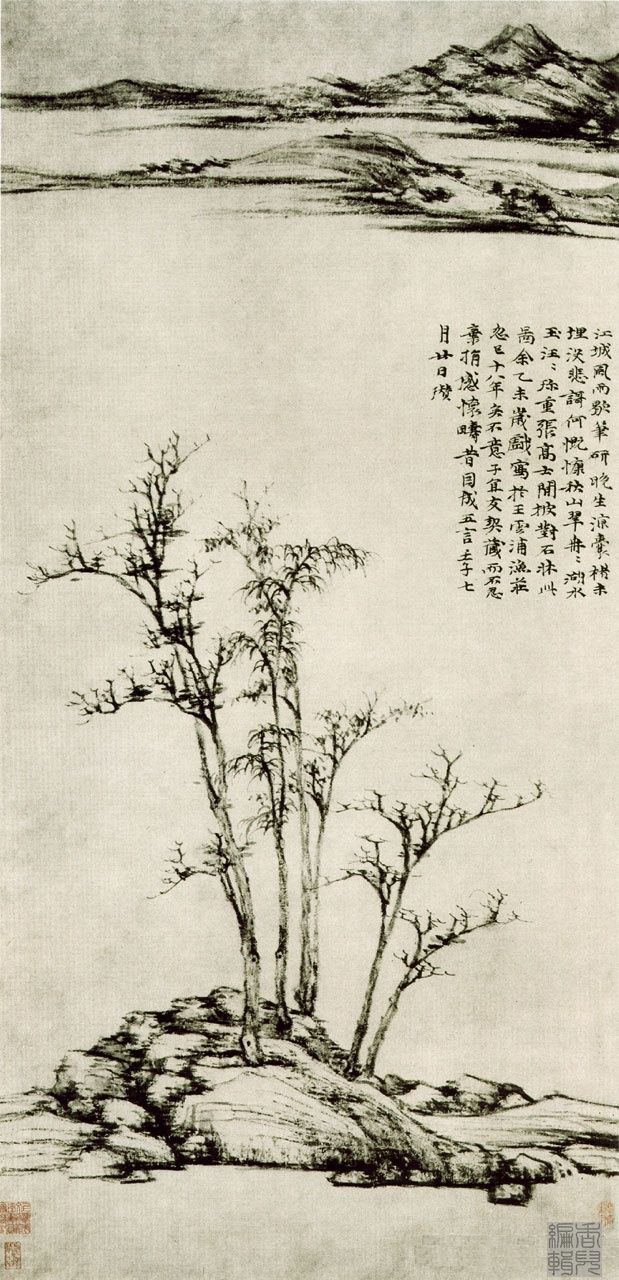 江城風雨歇筆研晚生涼囊楮未
埋没悲謌何慨慷秋山翠冉〻湖水
玉汪〻珎重張高士閒披對石牀此
啚余乙未歲戲寫於王雲浦漁莊
忽已十八年矣不意子宜友契藏而不忍
棄捐感懷疇昔因成五言壬子七
月廿日瓚
香兒
編輯